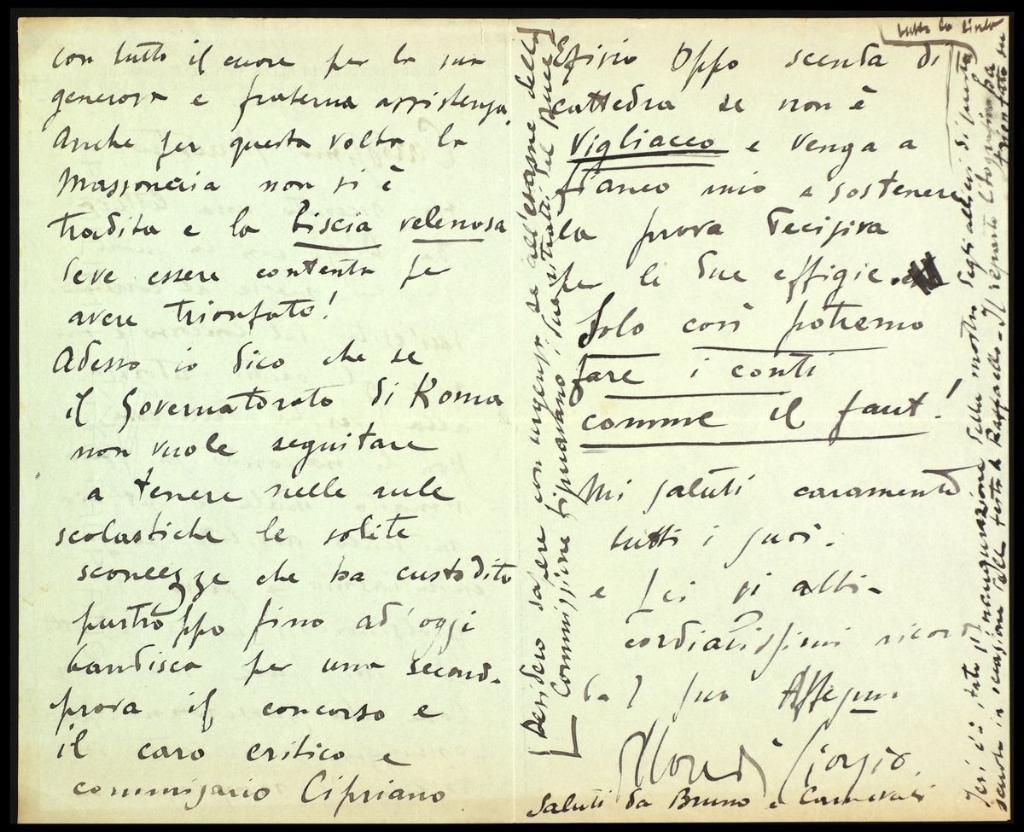 con tutto il cuore per la sua
generosa e fraterna assistenza.
Anche per questa volta la
Massoneria non si è
tradita e la biscia velenosa
deve essere contenta per
avere trionfato!
Adesso io dico che se
il Governatorato di Roma
non vuole seguitare
a tenere nelle aule
scolastiche le solite
sconcezze che ha custodito
purtroppo fino ad'oggi
bandisca per una seconda
prova il concorso e
il caro critico e
commissario Cipriano
Efisio Oppo scenda di
cattedra se non è
vigliacco e venga a
fianco mio a sostenere
la prova decisiva
per le due effigie.
Solo così potremo
fare i conti
comme il faut!
Mi saluti caramente
tutti i suoi.
e Lei si abbia
cordialissimi ricordi
dal suo Affezmo.
Giorgio.
Saluti da Bruno e
Desidero sapere con urgenza se all'esame della
Commissione figuravano i due ritratti del Duce
Ieri c'è stata l'inaugurazione della mostra degli allievi di questa
scuola in occasione della festa di Raffaello. Il reparto Litografia ha
trionfato su
tutta la linea